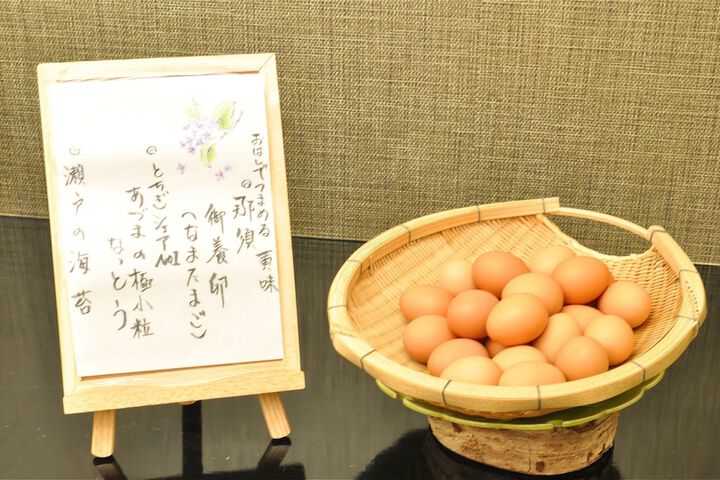 おはしでつまめる黄味
◎那須
御養卵
（なまたまご）
◎とちぎシェアNo.1
あづまの極小粒
なっとう
◎瀬戸の海苔